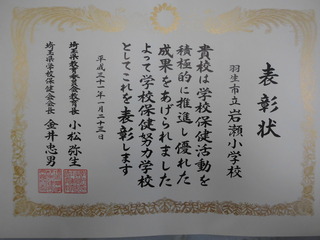 表彰状
羽生市立岩瀬小学校
貴校は学校保健活動を
積極的に推進し優れた
成果をあげられました
よって学校保健努力学校
としてこれを表彰します
平成三十一年一月二十三日
埼玉県教育委員会教育長 小松弥生
埼玉県学校保健会会長 金井忠男